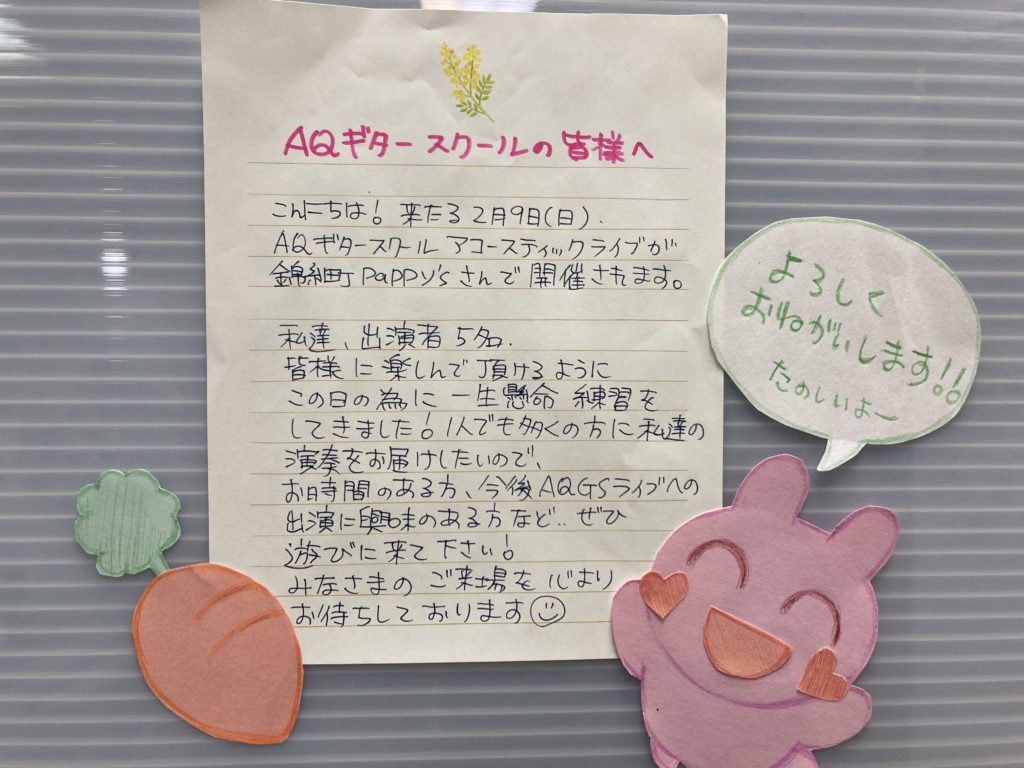 AQギター スクールの皆様へ
こんにちは！ 来たる2月9日(日).
AQギタースクール アコースティックライブが
錦糸町 Pappy'sさんで開催されます。
私達、出演者 5名.
皆様に楽しんで頂けるように
この日の為に 一生懸命 練習を
してきました！1人でも多くの方に私達の
演奏をお届けしたいので、
お時間のある方、今後AQGSライブへの
出演に興味のある方など‥ぜひ
遊びに来て下さい！
みなさまの ご来場を心より
お待ちしております☺
よろしく
おねがいします!!
たのしいよー